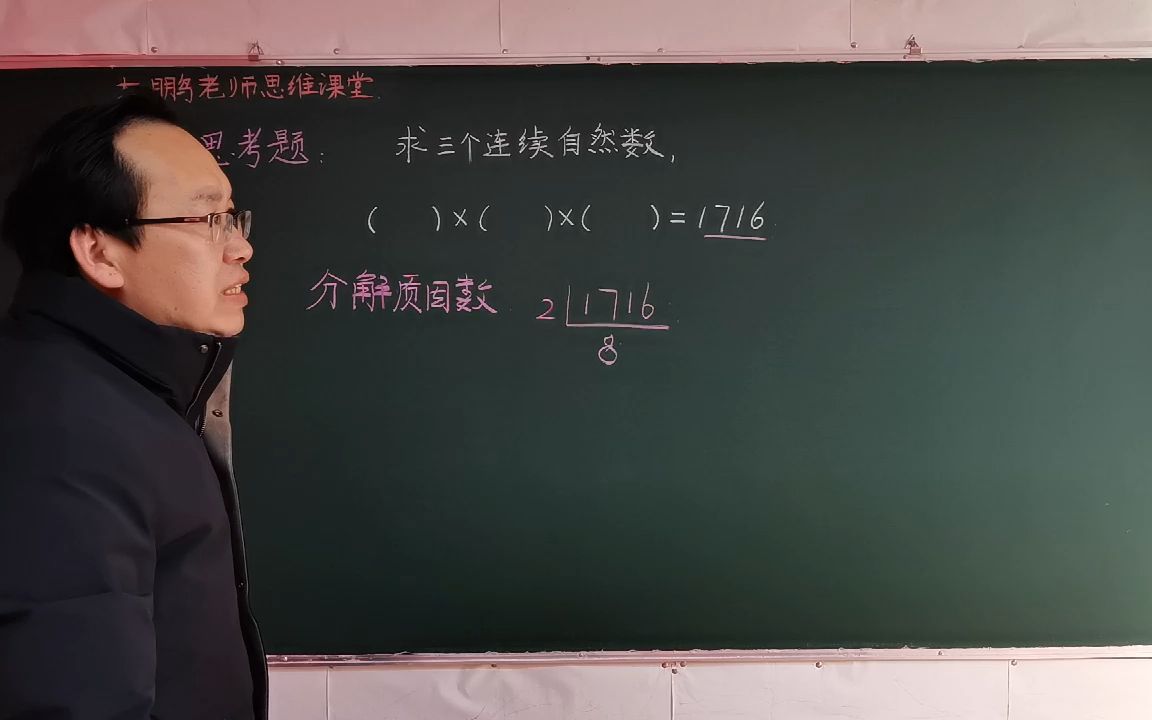 鹏老师思维课堂
思考题： 求三个连续自然数,
( )×( )×( )=1716
分解质因数 2 1716
8